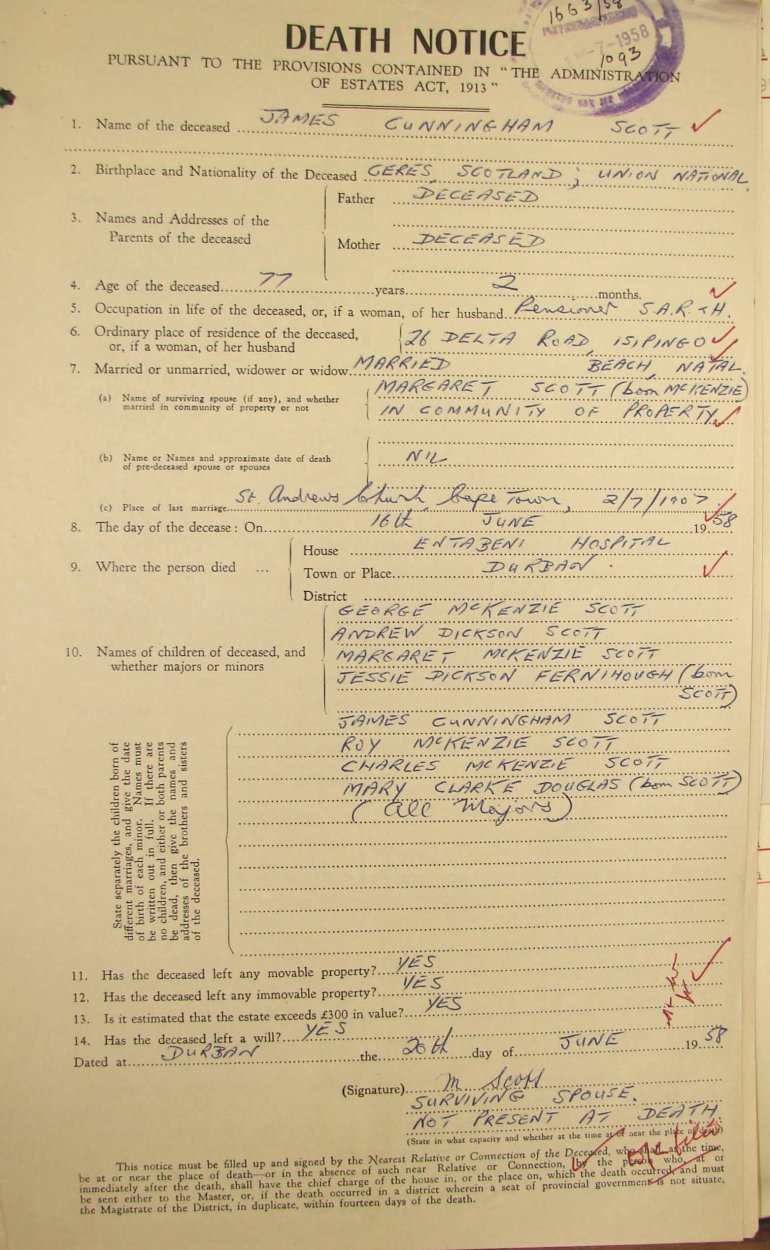 1663/58
-7-1958
1093
DEATH NOTICE
PURSUANT TO THE PROVISIONS CONTAINED IN "THE ADMINISTRATION
OF ESTATES ACT, 1913"
1. Name of the deceased JAMES CUNNINGHAM SCOTT
2. Birthplace and Nationality of the Deceased CERES, SCOTLAND; UNION NATIONAL
3. Names and Addresses of the Parents of the deceased
Father DECEASED
Mother DECEASED
4. Age of the deceased 77 years 2 months.
5. Occupation in life of the deceased, or, if a woman, of her husband Pensioner S.A.R. & H.
6. Ordinary place of residence of the deceased, or, if a woman, of her husband
26 DELTA ROAD, ISIPINGO
BEACH, NATAL.
7. Married or unmarried, widower or widow MARRIED
(a) Name of surviving spouse (if any), and whether married in community of property or not
MARGARET SCOTT (born McKENZIE)
IN COMMUNITY OF PROPERTY
(b) Name or Names and approximate date of death of pre-deceased spouse or spouses
NIL
(c) Place of last marriage St. Andrews Church, Cape Town, 2/7/1907.
8. The day of the decease: On 16th JUNE 1958
9. Where the person died ...
House ENTABENI HOSPITAL
Town or Place DURBAN.
District
10. Names of children of deceased, and whether majors or minors
GEORGE McKENZIE SCOTT
ANDREW DICKSON SCOTT
MARGARET McKENZIE SCOTT
JESSIE DICKSON FERNIHOUGH (born
SCOTT)
JAMES CUNNINGHAM SCOTT
ROY McKENZIE SCOTT
CHARLES McKENZIE SCOTT
MARY CLARKE DOUGLAS (born SCOTT)
(All Majors)
State separately the children born of
different marriages, and give the date
of birth of each minor. Names must
be written out in full. If there are
no children, and either or both parents
be dead, then give the names and
addresses of the brothers and sisters
of the deceased.
11. Has the deceased left any movable property? YES
12. Has the deceased left any immovable property? YES
13. Is it estimated that the estate exceeds £300 in value? YES
14. Has the deceased left a will? YES
Dated at DURBAN the 20th day of JUNE 1958
(Signature) M Scott
SURVIVING SPOUSE.
NOT PRESENT AT DEATH
(State in what capacity and whether at the time at or near the place of death)
This notice must be filled up and signed by the Nearest Relative or Connection of the Deceased, who shall at the time,
be at or near the place of death—or in the absence of such near Relative or Connection, by the person who, at or
immediately after the death, shall have the chief charge of the house in, or the place on, which the death occurred, and must
be sent either to the Master, or, if the death occurred in a district wherein a seat of provincial government is not situate,
the Magistrate of the District, in duplicate, within fourteen days of the death.